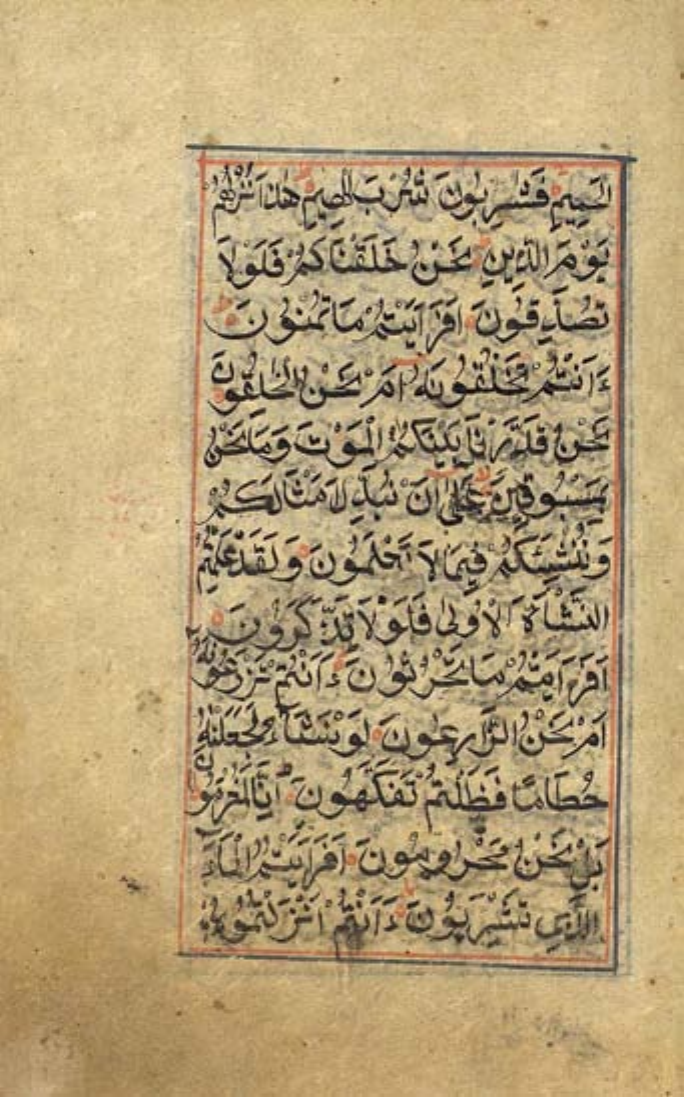 الْحَمِيمِ فَشَرِبُونَ شُرْبَ الْهِيمِ هٰذَا نُزُلُهُمْ
يَوْمَ الدِّينِ نَحْنُ خَلَقْنَاكُمْ فَلَوْلَا
تُصَدِّقُونَ اَفَرَاَيْتُمْ مَا تُمْنُونَ
ءَاَنْتُمْ تَخْلُقُونَهُ اَمْ نَحْنُ الْخٰلِقُونَ
نَحْنُ قَدَّرْنَا بَيْنَكُمُ الْمَوْتَ وَمَا نَحْنُ
بِمَسْبُوقِينَ عَلٰى اَنْ نُبَدِّلَ اَمْثَالَكُمْ
وَنُنْشِئَكُمْ فِيمَا لَا تَعْلَمُونَ وَلَقَدْ عَلِمْتُمُ
النَّشْاَةَ الْاُولٰى فَلَوْلَا تَذَكَّرُونَ
اَفَرَءَيْتُمْ مَا تَحْرُثُونَ ءَاَنْتُمْ تَزْرَعُونَهُ
اَمْ نَحْنُ الزَّارِعُونَ لَوْ نَشَآءُ لَجَعَلْنٰهُ
حُطَامًا فَظَلْتُمْ تَفَكَّهُونَ اِنَّا لَمُغْرَمُونَ
بَلْ نَحْنُ مَحْرُومُونَ اَفَرَاَيْتُمُ الْمَآءَ
الَّذِي تَشْرَبُونَ ءَاَنْتُمْ اَنْزَلْتُمُوهُ